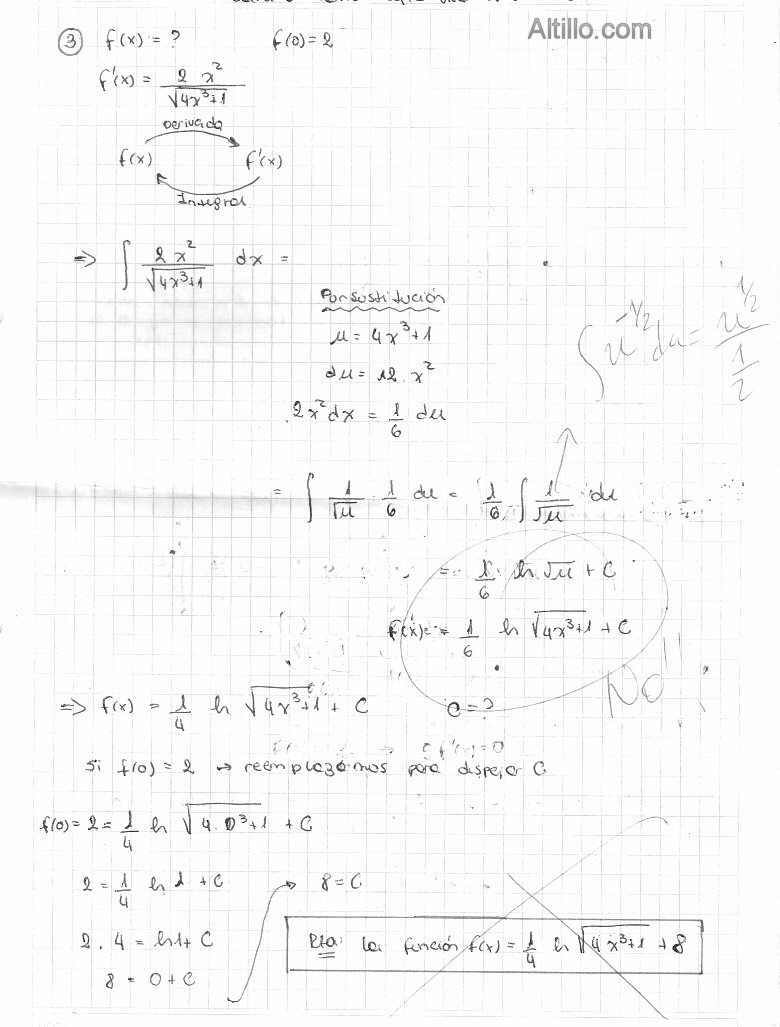 Altillo.com
③ f(x) = ? f(0) = 2
f'(x) = 2x² / √(4x³+1)
Derivada
f(x) f'(x)
Integral
=> ∫ 2x² / √(4x³+1) dx =
Por sustitución
u = 4x³+1
du = 12.x²
2x²dx = 1/6 du
∫ u^(-1/2) du = u^(1/2) / (1/2)
= ∫ 1/√u . 1/6 du = 1/6 . ∫ 1/√u . du
= 1/6 . ln √u + C
f(x) = 1/6 ln √(4x³+1) + C
No!!
=> f(x) = 1/4 ln √(4x³+1) + C C = ?
Si f(0) = 2 → reemplazamos para despejar C
f(0) = 2 = 1/4 ln √(4.0³+1) + C
2 = 1/4 ln 1 + C
2 . 4 = ln 1 + C
8 = 0 + C
8 = C
Rta: La función f(x) = 1/4 ln √(4x³+1) + 8